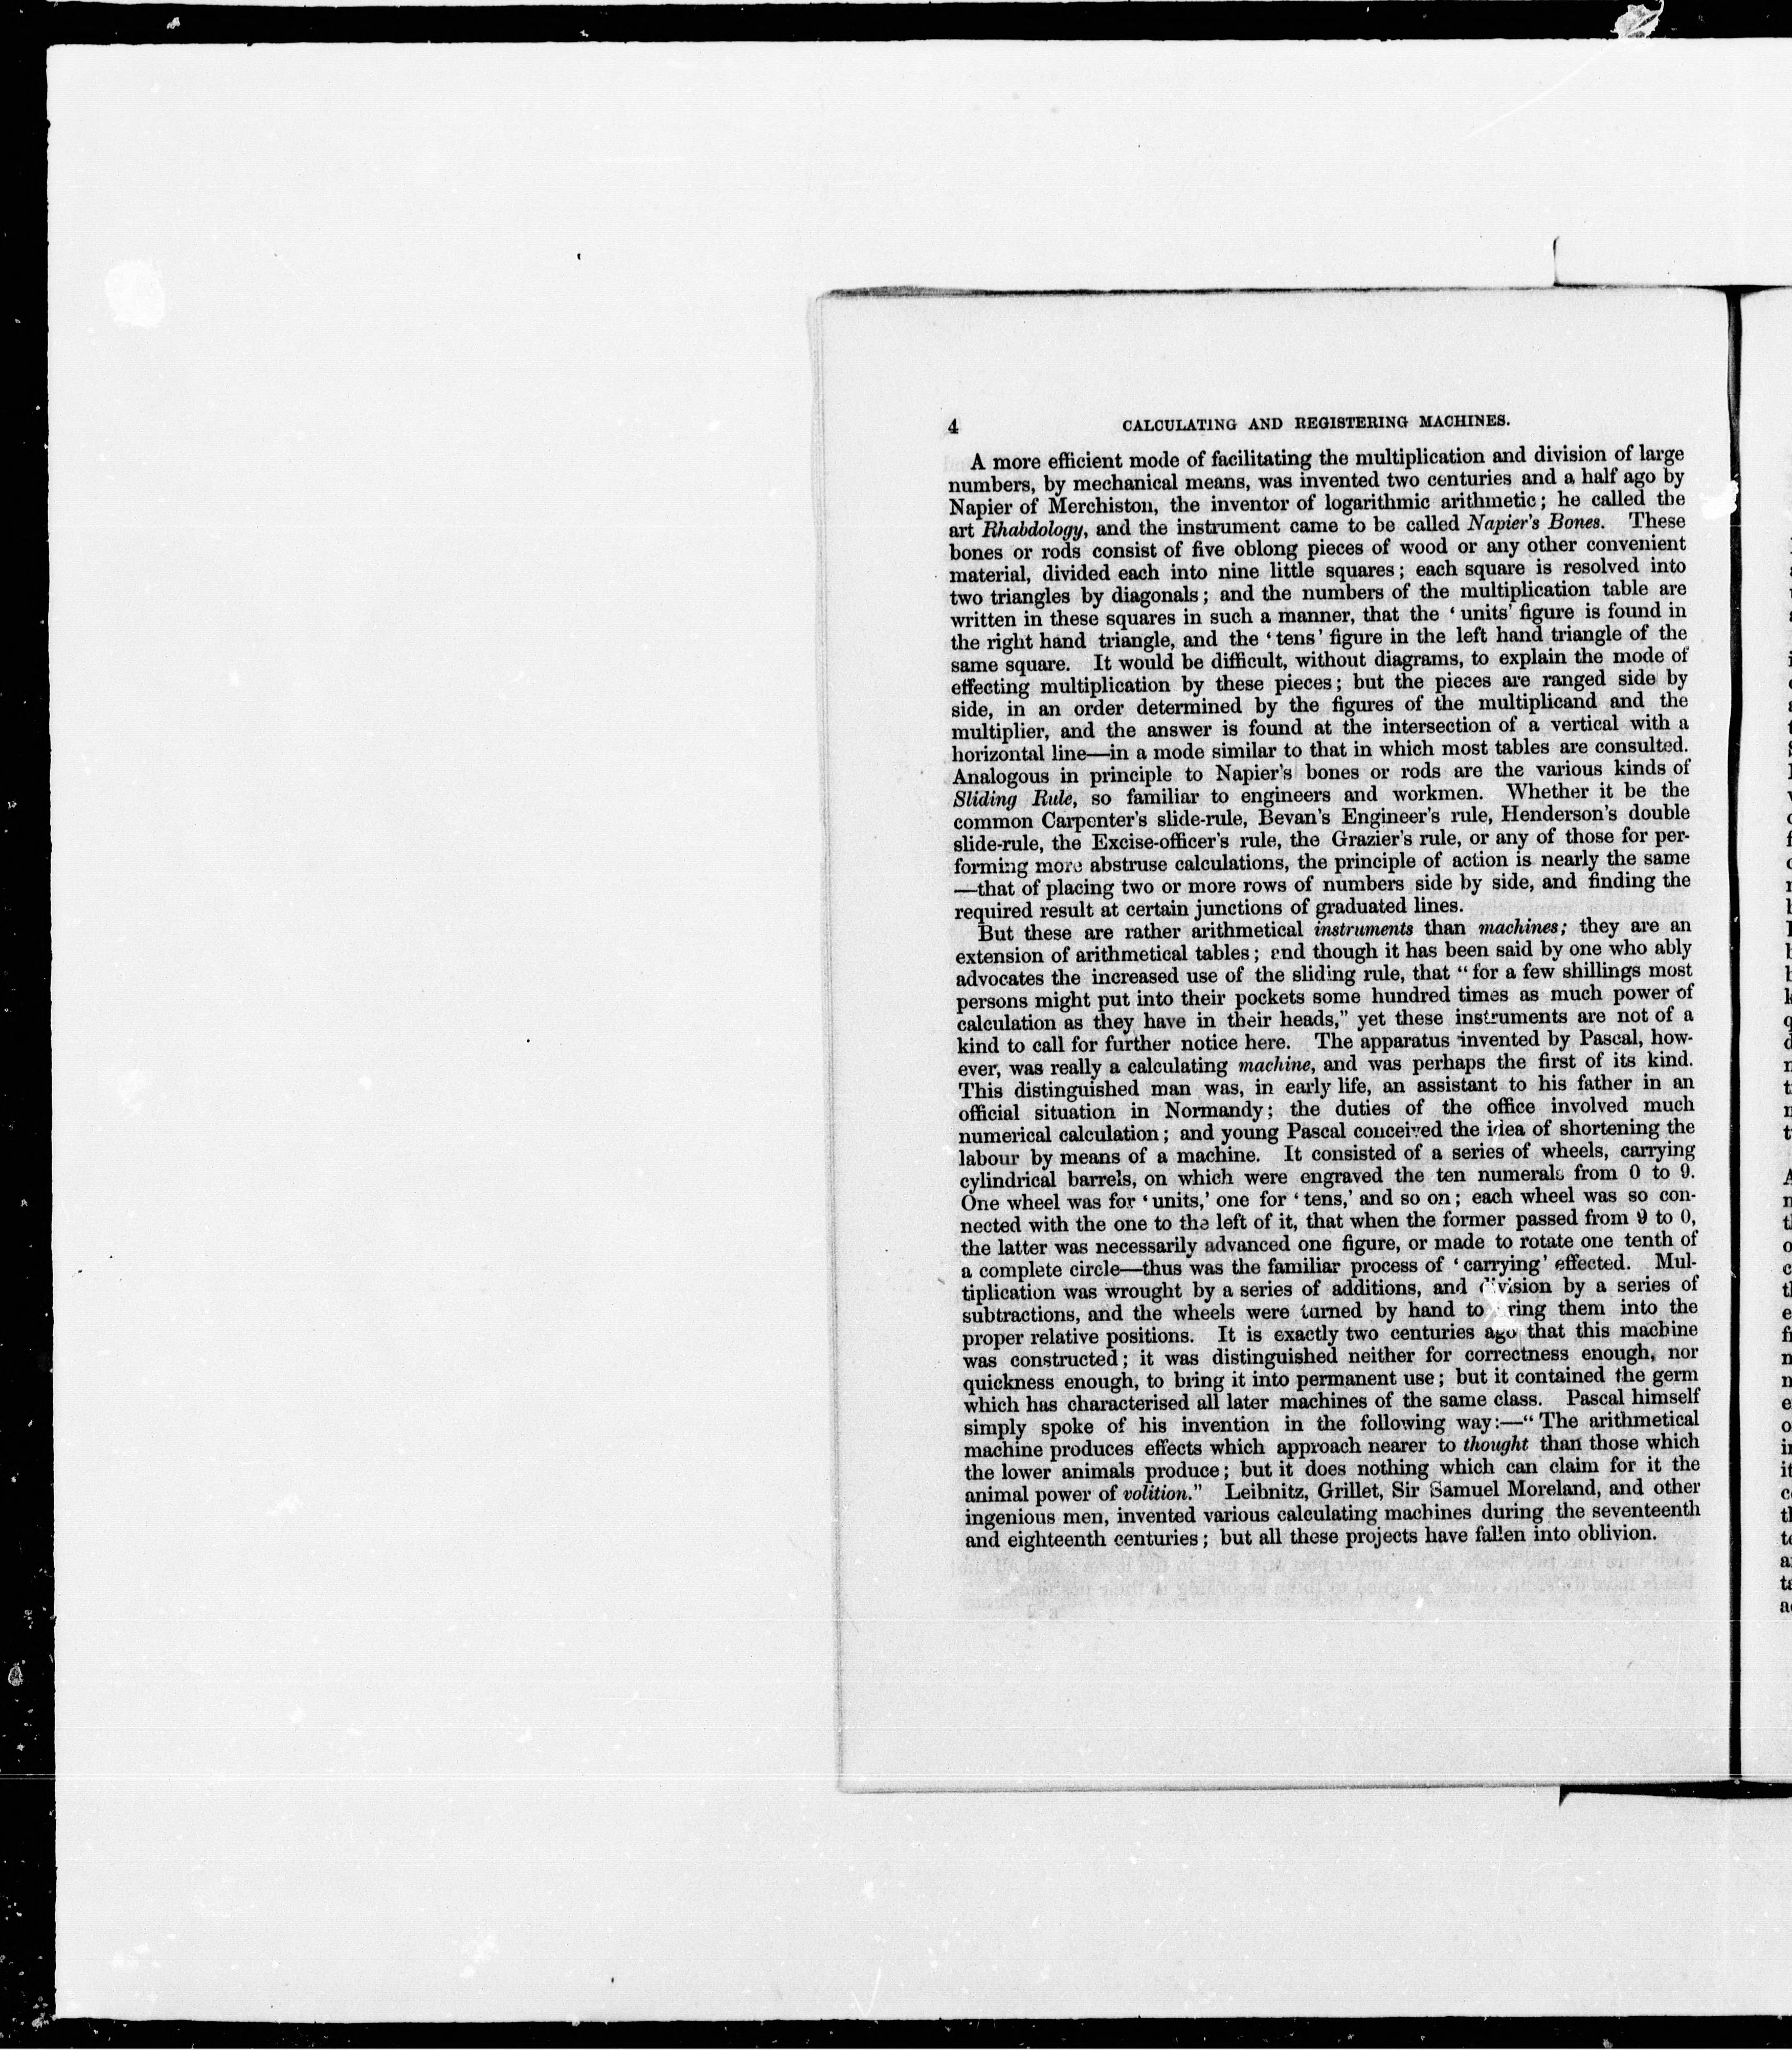 4 CALCULATING AND REGISTERING MACHINES.
A more efficient mode of facilitating the multiplication and division of large
numbers, by mechanical means, was invented two centuries and a half ago by
Napier of Merchiston, the inventor of logarithmic arithmetic; he called the
art Rhabdology, and the instrument came to be called Napier's Bones. These
bones or rods consist of five oblong pieces of wood or any other convenient
material, divided each into nine little squares; each square is resolved into
two triangles by diagonals; and the numbers of the multiplication table are
written in these squares in such a manner, that the ‘units’ figure is found in
the right hand triangle, and the ‘tens’ figure in the left hand triangle of the
same square. It would be difficult, without diagrams, to explain the mode of
effecting multiplication by these pieces; but the pieces are ranged side by
side, in an order determined by the figures of the multiplicand and the
multiplier, and the answer is found at the intersection of a vertical with a
horizontal line—in a mode similar to that in which most tables are consulted.
Analogous in principle to Napier's bones or rods are the various kinds of
Sliding Rule, so familiar to engineers and workmen. Whether it be the
common Carpenter's slide-rule, Bevan's Engineer's rule, Henderson's double
slide-rule, the Excise-officer's rule, the Grazier's rule, or any of those for per-
forming more abstruse calculations, the principle of action is nearly the same
—that of placing two or more rows of numbers side by side, and finding the
required result at certain junctions of graduated lines.
But these are rather arithmetical instruments than machines; they are an
extension of arithmetical tables; and though it has been said by one who ably
advocates the increased use of the sliding rule, that “for a few shillings most
persons might put into their pockets some hundred times as much power of
calculation as they have in their heads,” yet these instruments are not of a
kind to call for further notice here. The apparatus invented by Pascal, how-
ever, was really a calculating machine, and was perhaps the first of its kind.
This distinguished man was, in early life, an assistant to his father in an
official situation in Normandy; the duties of the office involved much
numerical calculation; and young Pascal conceived the idea of shortening the
labour by means of a machine. It consisted of a series of wheels, carrying
cylindrical barrels, on which were engraved the ten numerals from 0 to 9.
One wheel was for ‘units,’ one for ‘tens,’ and so on; each wheel was so con-
nected with the one to the left of it, that when the former passed from 9 to 0,
the latter was necessarily advanced one figure, or made to rotate one tenth of
a complete circle—thus was the familiar process of ‘carrying’ effected. Mul-
tiplication was wrought by a series of additions, and division by a series of
subtractions, and the wheels were turned by hand to bring them into the
proper relative positions. It is exactly two centuries ago that this machine
was constructed; it was distinguished neither for correctness enough, nor
quickness enough, to bring it into permanent use; but it contained the germ
which has characterised all later machines of the same class. Pascal himself
simply spoke of his invention in the following way:—“The arithmetical
machine produces effects which approach nearer to thought than those which
the lower animals produce; but it does nothing which can claim for it the
animal power of volition.” Leibnitz, Grillet, Sir Samuel Moreland, and other
ingenious men, invented various calculating machines during the seventeenth
and eighteenth centuries; but all these projects have fallen into oblivion.